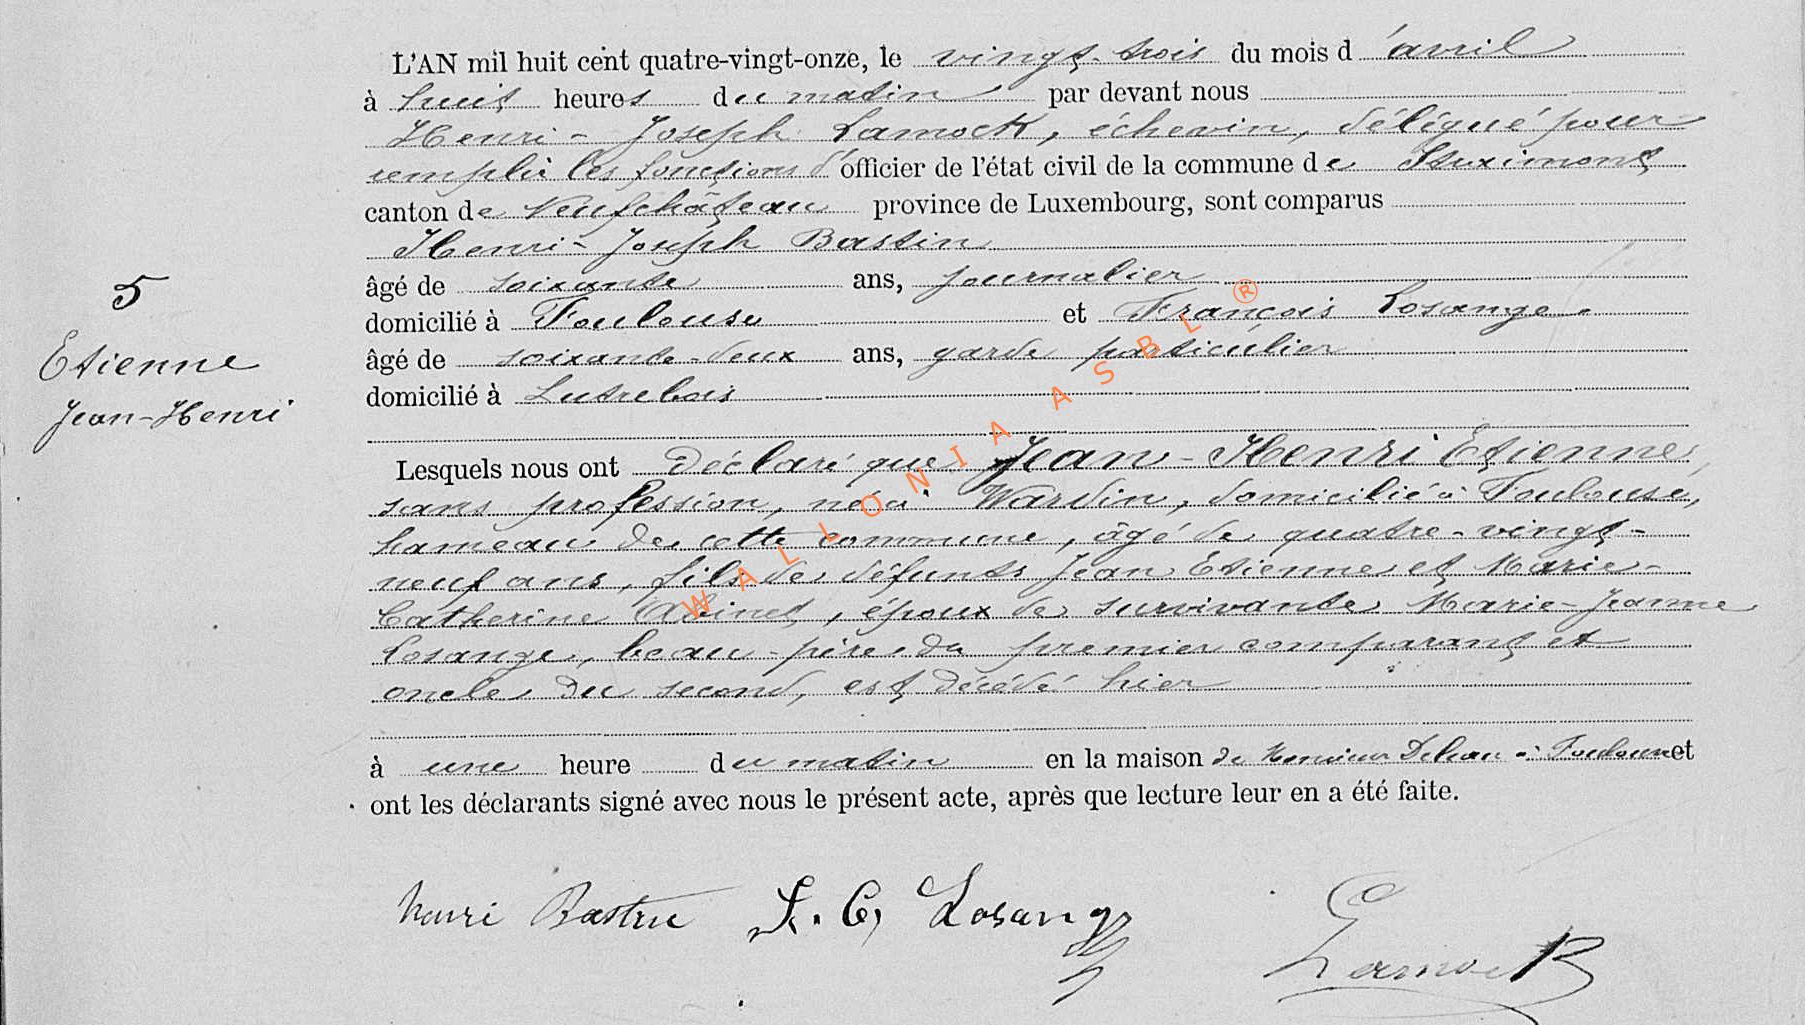 L'AN mil huit cent quatre-vingt-onze, le vingt-trois du mois d'avril
à huit heures du matin par devant nous
Henri-Joseph Lamock, échevin, délégué pour
remplir les fonctions d'officier de l'état civil de la commune de
canton de Neufchâteau province de Luxembourg, sont comparus
Henri-Joseph Bastin
âgé de soixante ans, journalier
domicilié à Foulouse et François Losange
âgé de soixante-deux ans, garde particulier
domicilié à Lutrebois
5
Etienne
Jean-Henri
Lesquels nous ont déclaré que Jean-Henri Etienne,
sans profession, né à Wardin, domicilié à Foulouse,
hameau de cette commune, âgé de quatre-vingt-
neuf ans, fils de défunts Jean Etienne et Marie-
Catherine, époux de survivante Marie-Jeanne
Losange, beau-père du premier comparant et
oncle du second, est décédé hier
à une heure du matin en la maison de Monsieur à et
ont les déclarants signé avec nous le présent acte, après que lecture leur en a été faite.
Henri Bastin F. C. Losange Lamock
WALLONIA ASBL ®